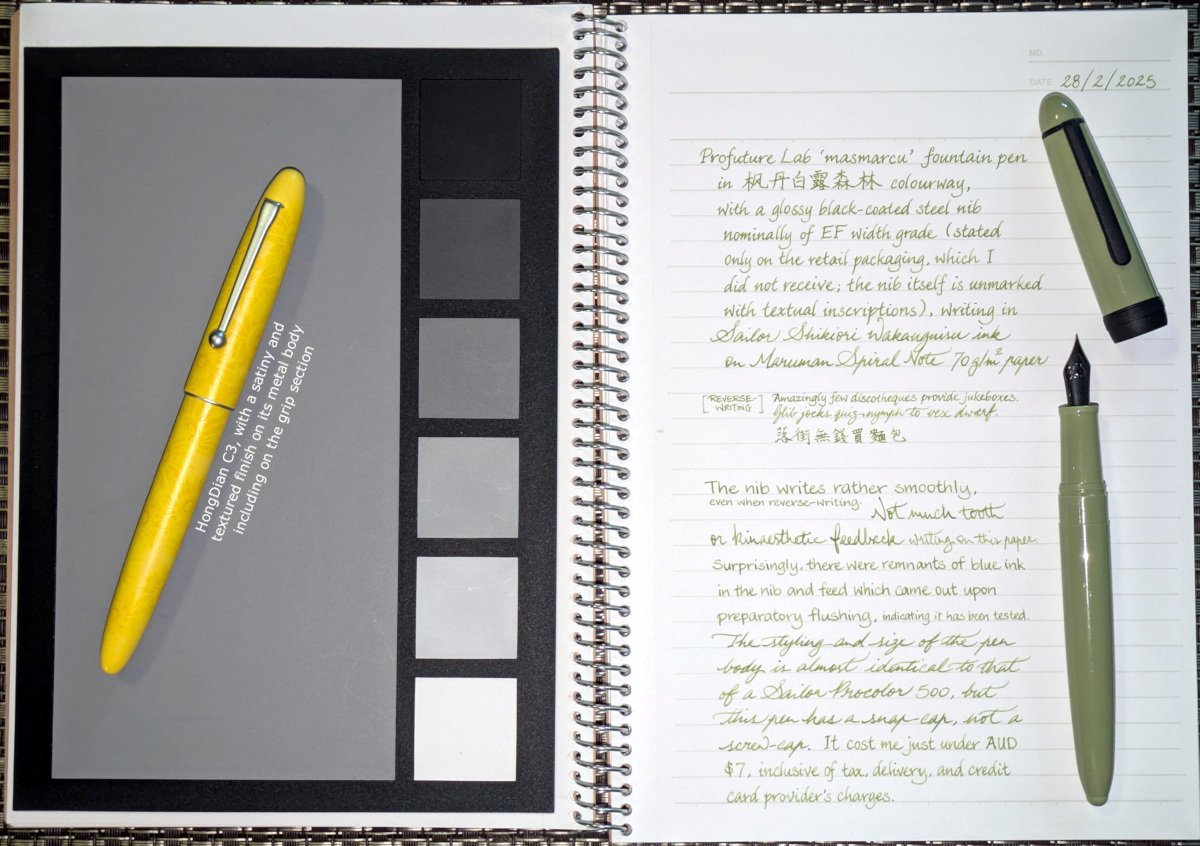 HongDian C3, with a satiny and
textured finish on its metal body
including on the grip section
NO.
DATE 28/2/2025
Profuture Lab 'masmarcu' fountain pen
in 枫丹白露森林 colourway,
with a glossy black-coated steel nib
nominally of EF width grade (stated
only on the retail packaging, which I
did not receive; the nib itself is unmarked
with textual inscriptions), writing in
Sailor Shikiori Wakauguisu ink
on Maruman Spiral Note 70g/m² paper
[REVERSE-WRITING] Amazingly few discotheques provide jukeboxes.
Glib jocks quiz nymph to vex dwarf.
落街無錢買麵包
The nib writes rather smoothly,
even when reverse-writing. Not much tooth
or kinaesthetic feedback writing on this paper.
Surprisingly, there were remnants of blue ink
in the nib and feed which came out upon
preparatory flushing, indicating it has been tested.
The styling and size of the pen
body is almost identical to that
of a Sailor Procolor 500, but
this pen has a snap-cap, not a
screw-cap. It cost me just under AUD
$7, inclusive of tax, delivery, and credit
card provider's charges.